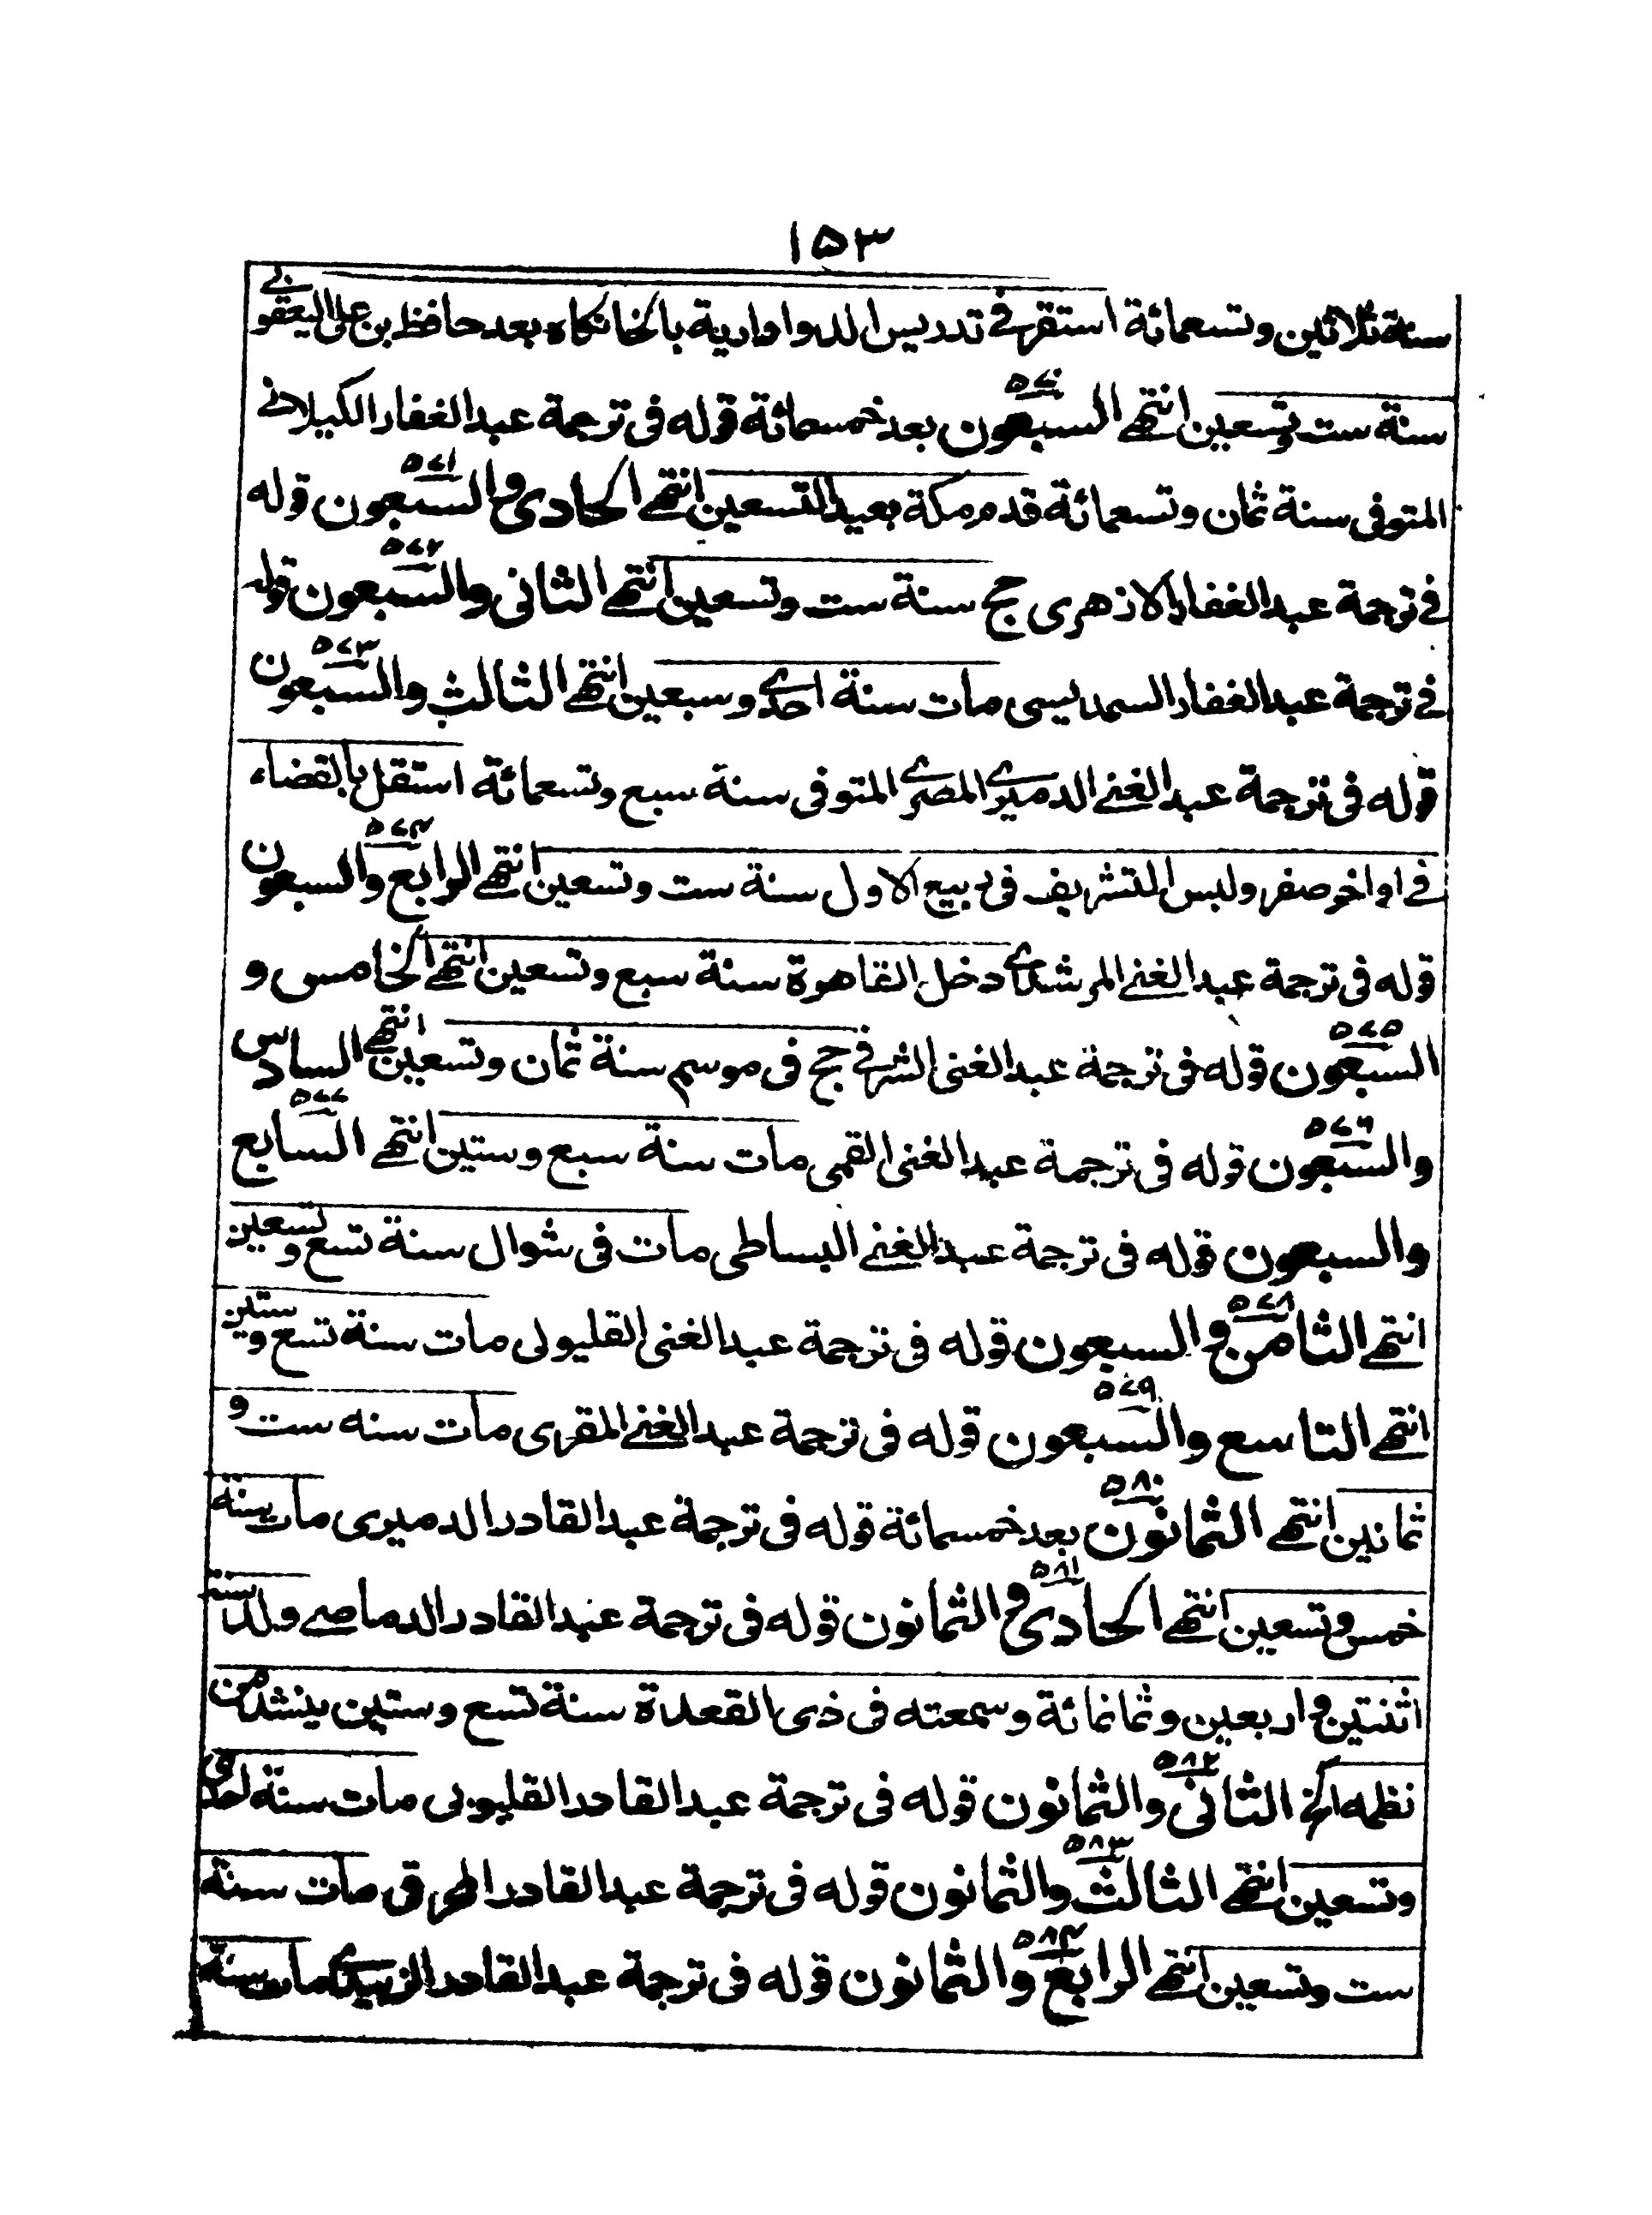 ١٥٣
سنة ثلاثين وتسعمائة استقر في تدريس الدواوادية بالخانكاه بعد حافظ بن علي اليعقوبي
سنة ست وتسعين انتهى السبعون ٥٧٠ بعد خمسمائة قوله في ترجمة عبد الغفار الكيلاني
المتوفى سنة ثمان وتسعمائة قدم مكة بعيد التسعين انتهى الحادي والسبعون ٥٧١ قوله
في ترجمة عبد الغفار الازهري حج سنة ست وتسعين انتهى الثاني والسبعون ٥٧٢ قوله
في ترجمة عبد الغفار السمديسى مات سنة احدى وسبعين انتهى الثالث والسبعون ٥٧٣
قوله في ترجمة عبد الغني الدميري المصري المتوفى سنة سبع وتسعمائة استقل بالقضاء
في اواخر صفر ولبس التشريف في ربيع الاول سنة ست وتسعين انتهى الرابع والسبعون ٥٧٤
قوله في ترجمة عبد الغني المرشدي دخل القاهرة سنة سبع وتسعين انتهى الخامس و
السبعون ٥٧٥ قوله في ترجمة عبد الغنى الشرفي حج في موسم سنة ثمان وتسعين انتهى السادس
والسبعون ٥٧٦ قوله في ترجمة عبد الغنى القمى مات سنة سبع وستين انتهى السابع ٥٧٧
والسبعون قوله في ترجمة عبد الغني البساطى مات في شوال سنة تسع وتسعين
انتهى الثامن والسبعون ٥٧٨ قوله في ترجمة عبد الغنى القليولى مات سنة تسع وستين
انتهى التاسع والسبعون ٥٧٩ قوله في ترجمة عبد الغني المقرى مات سنه ست و
ثمانين انتهى الثمانون ٥٨٠ بعد خمسمائة قوله في ترجمة عبد القادر الدميرى مات سنة
خمس وتسعين انتهى الحادي والثمانون ٥٨١ قوله في ترجمة عبد القادر الدماصي ولد سنة
اثنتين واربعين وثمانمائة وسمعته في ذى القعدة سنة تسع وستين ينشد من
نظمه الخ الثاني والثمانون ٥٨٢ قوله في ترجمة عبد القادر القليوبى مات سنة احدى
وتسعين انتهى الثالث والثمانون ٥٨٣ قوله في ترجمة عبد القادر مات سنة
ست وتسعين انتهى الرابع والثمانون ٥٨٤ قوله في ترجمة عبد القادر الزبيدي مات سنة